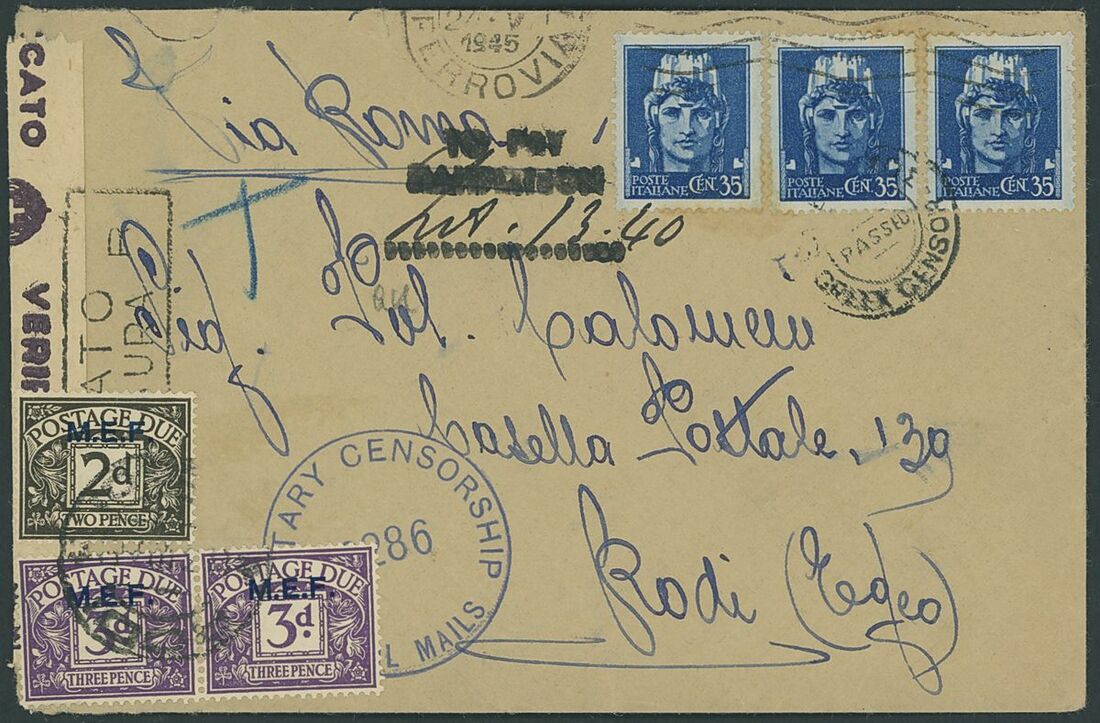 1945
FERROVIA
Via Roma
TO PAY
Lit. 13.40
POSTE ITALIANE CEN. 35
POSTE ITALIANE CEN. 35
POSTE ITALIANE CEN. 35
PASSED
CENSOR
T
CATO
VERI
ATO
Sig.
Casella Postale 139
Rodi (Egeo)
TARY CENSORSHIP
286
L MAILS
POSTAGE DUE
M.E.F.
2d
TWO PENCE
POSTAGE DUE
M.E.F.
3d
THREE PENCE
POSTAGE DUE
M.E.F.
3d.
THREE PENCE